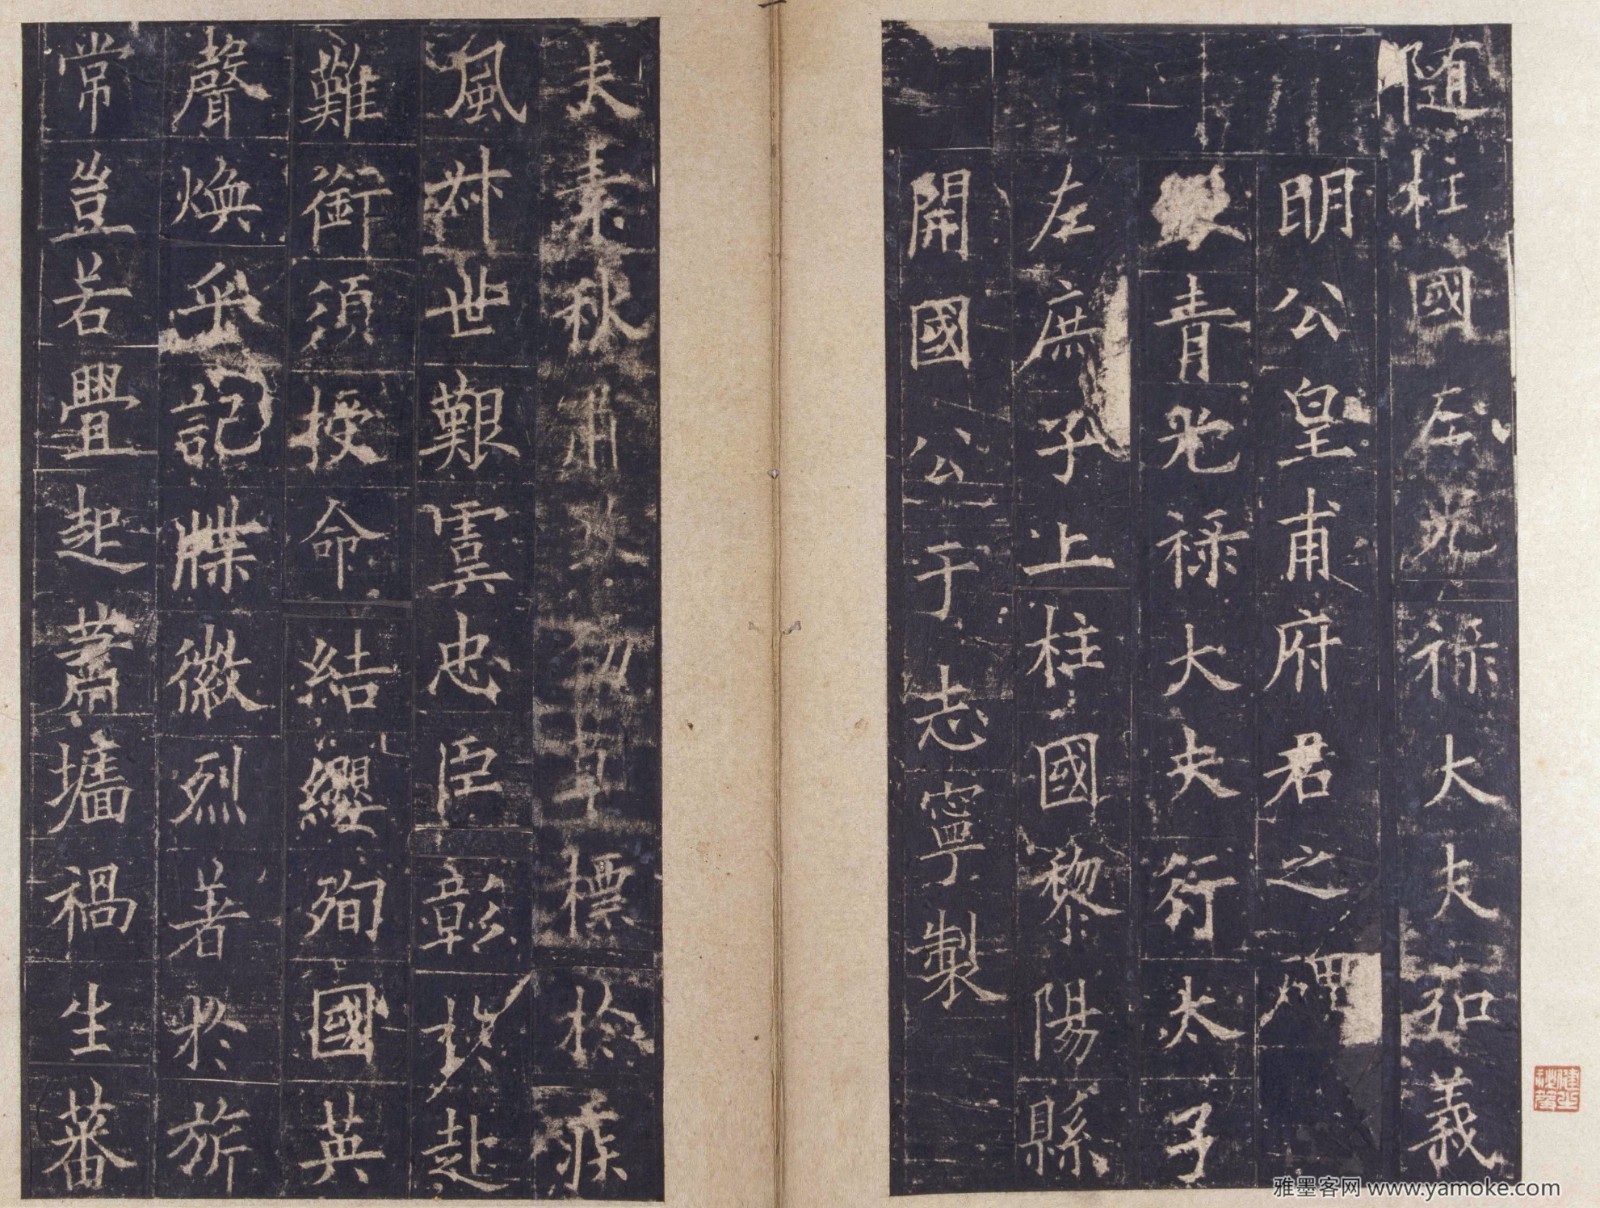 随柱國左光祿大夫弘義
明公皇甫府君之碑
銀青光祿大夫行太子
左庶子上柱國黎陽縣
開國公于志寧製
夫素秋肅煞勁草標於疾
風叔世艱虞忠臣彰於赴
難銜須授命結纓殉國英
聲煥乎記牒徽烈著於旂
常豈若疊起蕭墻禍生蕃
雅墨客网 www.yamoke.com